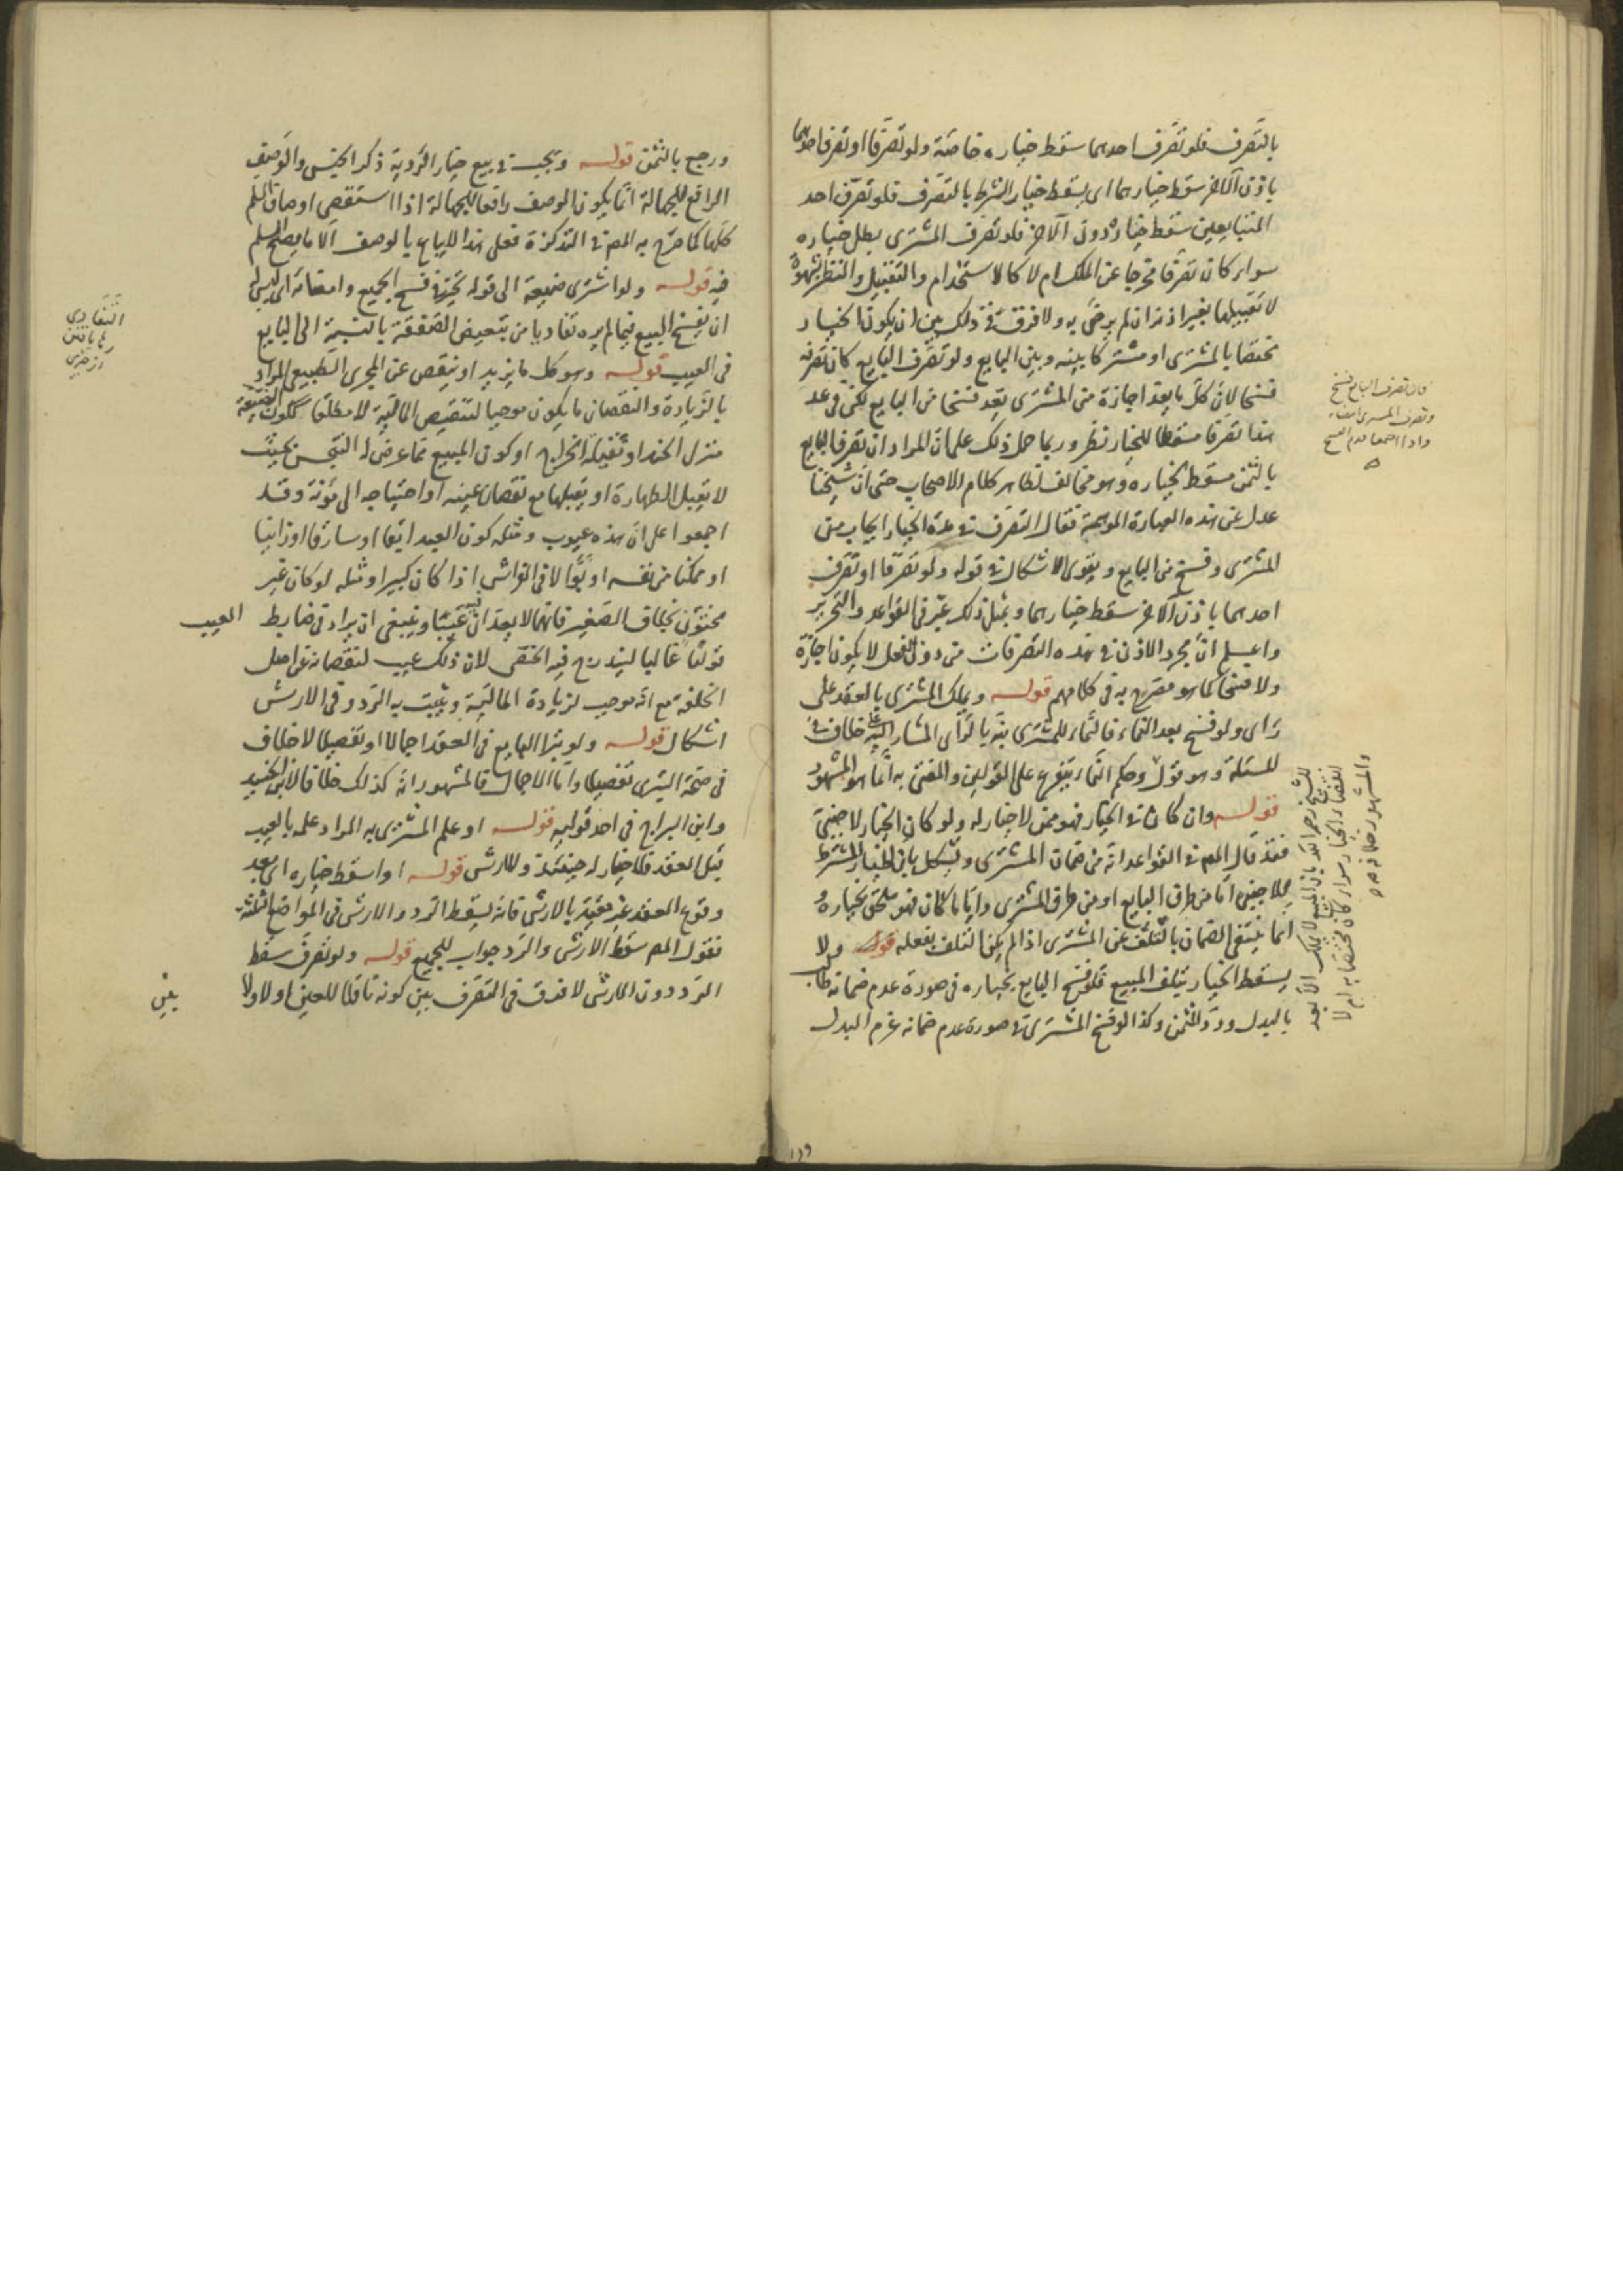 بالتصرف فلو تصرف احدهما سقط خياره خاصة ولو تصرفا او تصرف احدهما
باذن الآخر سقط خيارهما اى يسقط خيار الشرط بالتصرف فلو تصرف احد
المتبايعين سقط خياره دون الآخر فلو تصرف المشترى بطل خياره
سواء كان تصرفا مخرجا عن الملك ام لا كالاستخدام والتقبيل والنظر بشهوة
لا تقبيلها بغير اذنه ان لم يرض به ولا فرق فى ذلك بين ان يكون الخيار
مختصا بالمشترى او مشتركا بينه وبين البايع ولو تصرف البايع كان تصرفه
فسخا لان كل ما يعد اجازة من المشترى يعد فسخا من البايع لكن فى عد
هذا تصرفا مسقطا للخيار نظر وربما حمل ذلك على ان المراد ان تصرف البايع
بالثمن مسقط لخياره وهو مخالف لظاهر كلام الاصحاب حتى ان شيخنا
عدل عن هذه العبارة الموهمة فقال التصرف فى مدة الخيار ايجاب من
المشترى وفسخ من البايع ويقوى الاشكال فى قوله ولو تصرفا او تصرف
احدهما باذن الآخر سقط خيارهما وبمثل ذلك عبر فى القواعد والتحرير
واعلم ان مجرد الاذن فى هذه التصرفات من دون الفعل لا يكون اجازة
ولا فسخا كما هو مصرح به فى كلامهم قوله ويملك المشترى بالعقد على
راى ولو فسخ بعد النماء فالنماء للمشترى نبه بالراى المشار اليه على خلاف فى
المسئلة وهو قول وحكم النماء يتفرع على القولين والمفتى به انما هو المشهور
قوله وان كان فى الخيار فهو ممن لا خيار له ولو كان الخيار لاجنبى
فقد قال المص فى القواعد انه من ضمان المشترى ويشكل بان الخيار المشترط
للاجنبى اما من طرف البايع او من طرف المشترى وايا ما كان فهو ملحق بخياره و
انما ينتفى الضمان بالتلف عن المشترى اذا لم يكن التلف بفعله قوله ولا
يسقط الخيار بتلف المبيع فلو فسخ البايع بخياره فى صورة عدم ضمانه طالب
بالبدل ورد الثمن وكذا لو فسخ المشترى فى صورة عدم ضمانه غرم البدل
فان تصرف البايع فسخ
وتصرف المشترى امضاء
واذا اجتمعا قدم الفسخ
للشيخ رحمه الله بان المبيع لا يملك الا بعد
انقضاء الخيار سواء كان مختصا به ام لا
والمشهور خلافه
ورجع بالثمن قوله ويجب فى بيع خيار الرؤية ذكر الجنس والوصف
الرافع للجهالة انما يكون الوصف رافعا للجهالة اذا استقصى اوصاف السلم
كلها كما صرح به المص فى التذكرة فعلى هذا لا يباع بالوصف الا ما يصح السلم
فيه قوله ولو اشترى ضيعة الى قوله تخير فى فسخ الجميع وامضائه اى ليس له
ان يفسخ البيع فيما لم يره تفاديا من تبعيض الصفقة بالنسبة الى البايع
فى العيب قوله وهو كل ما يزيد او ينقص عن المجرى الطبيعى المراد
بالزيادة والنقصان ما يكون موجبا لتنقيص المالية لا مطلقا ككون الضيعة
منزل الجند او ثقيلة الخراج او كون المبيع مما عرض له النجس بحيث
لا يقبل الطهارة او يقبلها مع نقصان عينه او احتياجه الى مؤنة وقد
اجمعوا على ان هذه عيوب ومثله كون العبد ابقا او سارقا او زانيا
او ممكنا من نفسه او بوالا فى الفراش اذا كان كبيرا ومثله لو كان غير
مختون بخلاف الصغير فانهما لا يعدان فيه عيبا وينبغى ان يراد فى ضابط العيب
قولنا غالبا ليندرج فيه الخصى لان ذلك عيب لنقصانه عن اصل
الخلقة مع انه موجب لزيادة المالية ويثبت به الرد وفى الارش
اشكال قوله ولو تبرا البايع فى العقد اجمالا او تفصيلا لا خلاف
فى صحة التبرى تفصيلا واما الاجمال فالمشهور انه كذلك خلافا لابن الجنيد
وابن البراج فى احد قوليه قوله او علم المشترى به المراد علمه بالعيب
قبل العقد فلا خيار له حينئذ ولا ارش قوله او اسقط خياره اى بعد
وقوع العقد غير مقيد بالارش فانه يسقط الرد والارش فى المواضع الثلثة
فقول المص سقط الارش والرد جواب للجميع قوله ولو تصرف سقط
الرد دون الارش لا فرق فى التصرف بين كونه ناقلا للعين او لا ولا
بين
التفادى